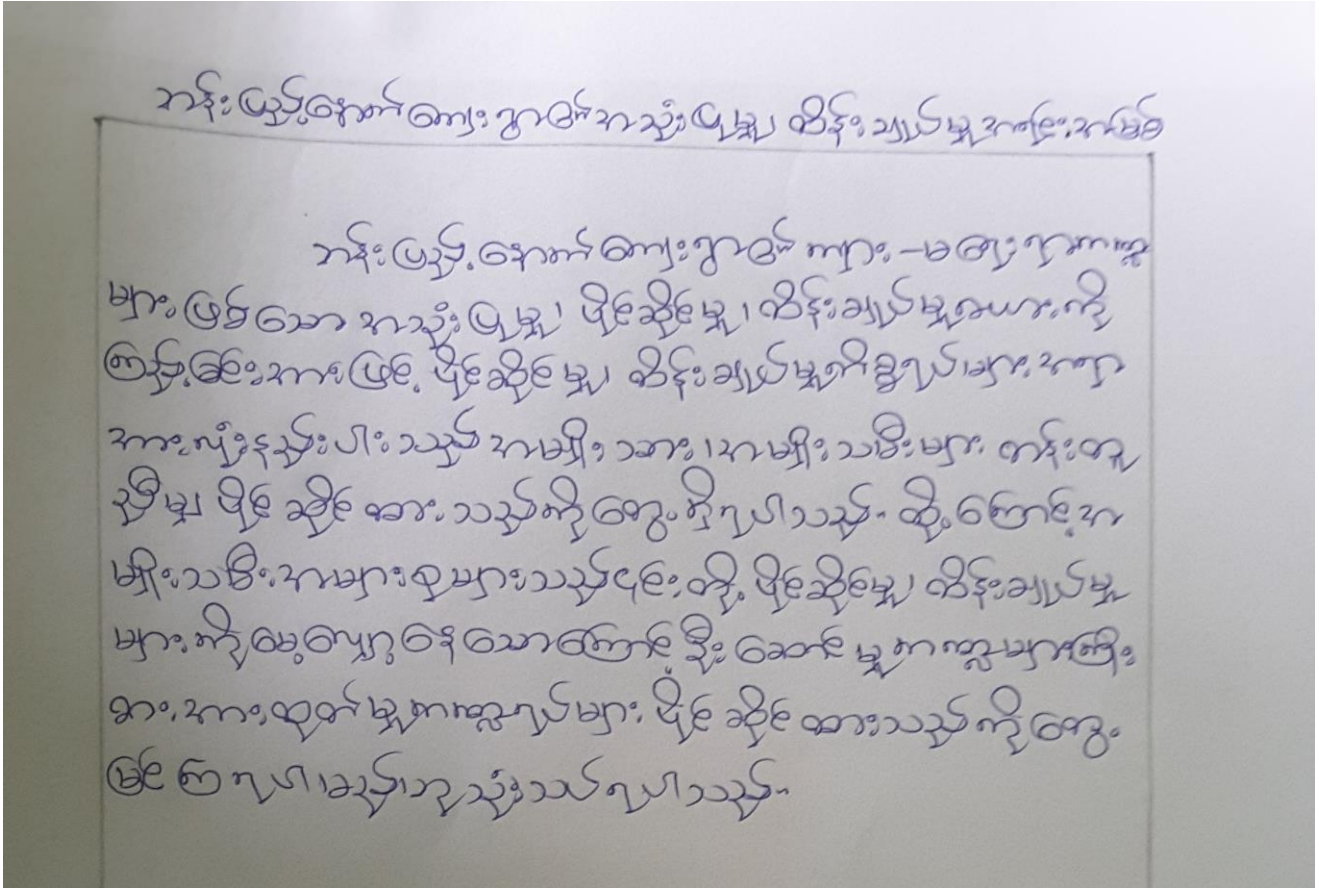 ဘန်းပြည့်နောက်ကျေးရွာ၏အသုံးပြုမှု၊ ထိန်းချုပ်မှုအကြောင်းအမြစ်
ဘန်းပြည့်နောက်ကျေးရွာ၏ ကျား-မရေးရာကဏ္ဍ
များဖြစ်သော အသုံးပြုမှု၊ ပိုင်ဆိုင်မှု၊ ထိန်းချုပ်မှုဇယားကို
ကြည့်ခြင်းအားဖြင့် ပိုင်ဆိုင်မှု၊ ထိန်းချုပ်မှုကိစ္စရပ်များအရာ
အားလုံးနည်းပါးသည် အမျိုးသား၊အမျိုးသမီးများ တန်းတူ
ညီမျှ ပိုင်ဆိုင်ထားသည်ကိုတွေ့ရှိရပါသည်။ ထို့ကြောင့်အ
မျိုးသမီးအများစုများသည်၎င်းတို့ပိုင်ဆိုင်မှု၊ ထိန်းချုပ်မှု
များကိုမေ့လျော့နေသောကြောင့်ဦးဆောင်မှုကဏ္ဍများကြိုး
စားအားထုတ်မှုကဏ္ဍရပ်များ ပိုင်ဆိုင်ထားသည်ကိုတွေ့
မြင်ကြရပါမည်ဟုသုံးသပ်ရပါသည်။